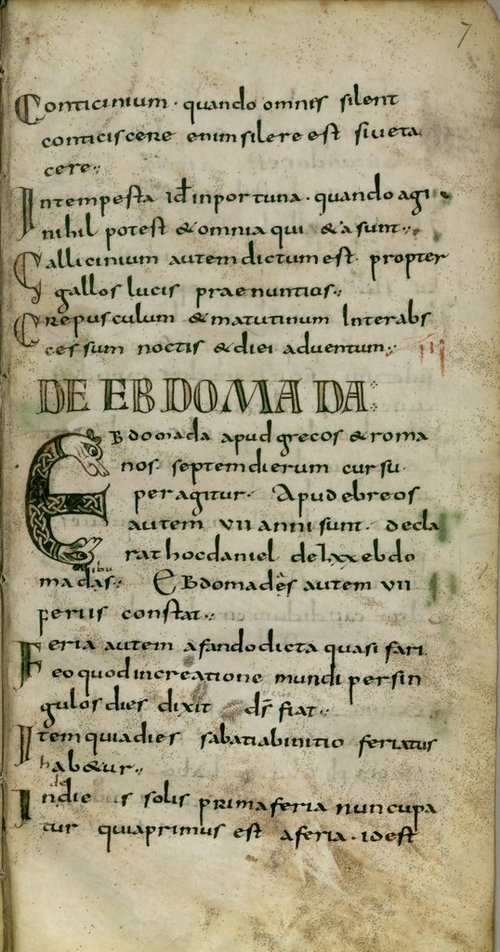 7
Conticinium · quando omnis silent
conticiscere enim silere est sive ta
cere ·,
Intempesta id inportuna · quando agi
nihil potest & omnia qui &a sunt ·,
Gallicinium autem dictum est propter
gallos lucis praenuntios ·,
Crepusculum & matutinum Interabs
cessum noctis & diei adventum ·,
III
DE EBDOMADA
EBdomada apud grecos & roma
nos septem dierum cursu
peragitur · Apud ebreos
autem vii anni sunt · decla
rat hoc daniel de lxx ebdo
madas ·, EBdomades autem vii
ibu
feriis constat ·,
Feria autem a fando dicta quasi fari
eo quod in creatione mundi per sin
gulos dies dixit ds fiat ·,
Item quia dies sabati ab initio feriatus
hab&ur ·,
de
Indie is solis prima feria nuncupa
tur quia primus est a feria · id est